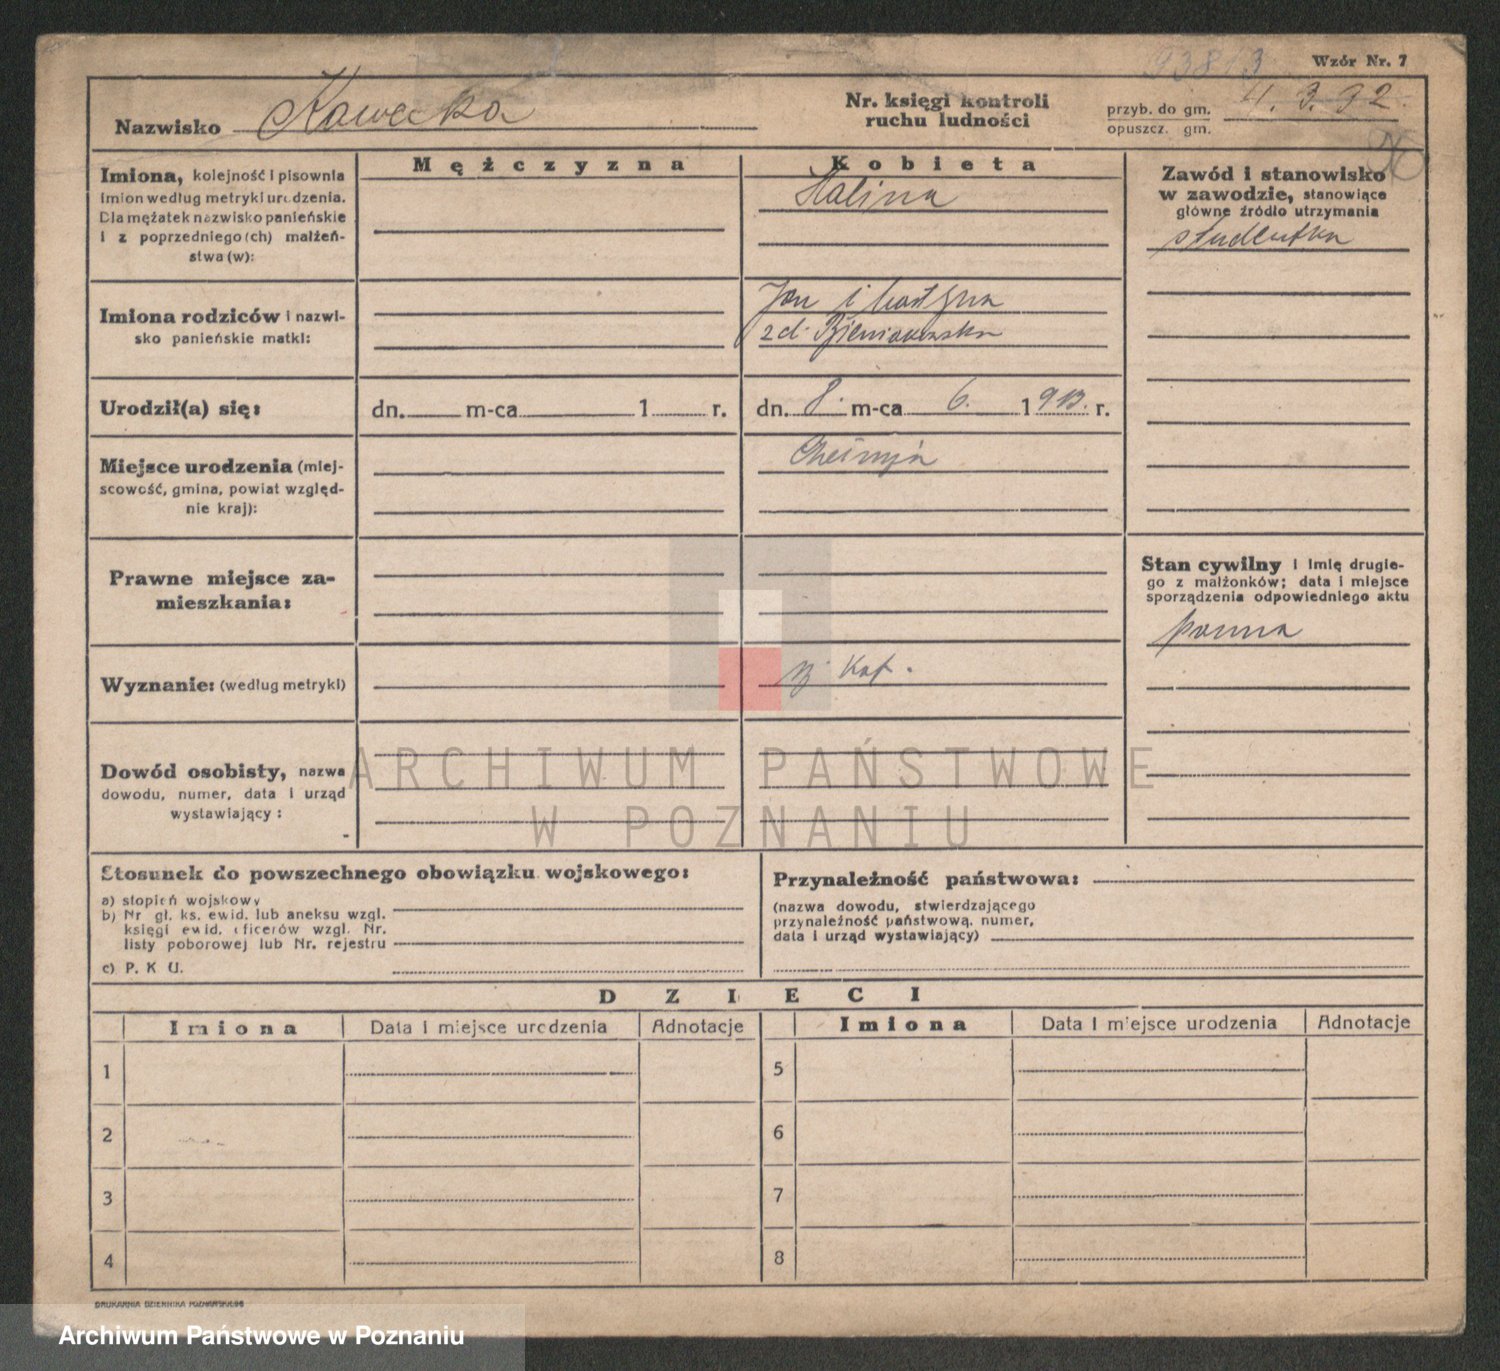 93813
Wzór Nr. 7
Nazwisko Kawecka
Nr. księgi kontroli
ruchu ludności
przyb. do gm.
opuszcz. gm.
4. 3. 32.
Mężczyzna
Kobieta
Imiona, kolejność i pisownia
imion według metryki urodzenia.
Dla mężatek nazwisko panieńskie
i z poprzedniego(ch) małżeń-
stwa(w):
Halina
Zawód i stanowisko
w zawodzie, stanowiące
główne źródło utrzymania
studentka
Imiona rodziców i nazwi-
sko panieńskie matki:
Jan i
zd. Bieniawska
Urodził(a) się:
dn. m-ca 1 r.
dn. 8. m-ca 6. 1913. r.
Miejsce urodzenia (miej-
scowość, gmina, powiat względ-
nie kraj):
Prawne miejsce za-
mieszkania:
Stan cywilny i imię drugie-
go z małżonków; data i miejsce
sporządzenia odpowiedniego aktu
panna
Wyznanie: (według metryki)
rz. kat.
Dowód osobisty, nazwa
dowodu, numer, data i urząd
wystawiający:
ARCHIWUM PAŃSTWOWE
W POZNANIU
Stosunek do powszechnego obowiązku wojskowego:
a) stopień wojskowy
b) Nr gł. ks. ewid. lub aneksu wzgl.
księgi ewid. oficerów wzgl. Nr.
listy poborowej lub Nr. rejestru
c) P. K U.
Przynależność państwowa:
(nazwa dowodu, stwierdzającego
przynależność państwową, numer,
data i urząd wystawiający)
DZIECI
Imiona Data i miejsce urodzenia Adnotacje Imiona Data i miejsce urodzenia Adnotacje
1 5
2 6
3 7
4 8
DRUKARNIA DZIENNIKA POZNAŃSKIEGO
Archiwum Państwowe w Poznaniu